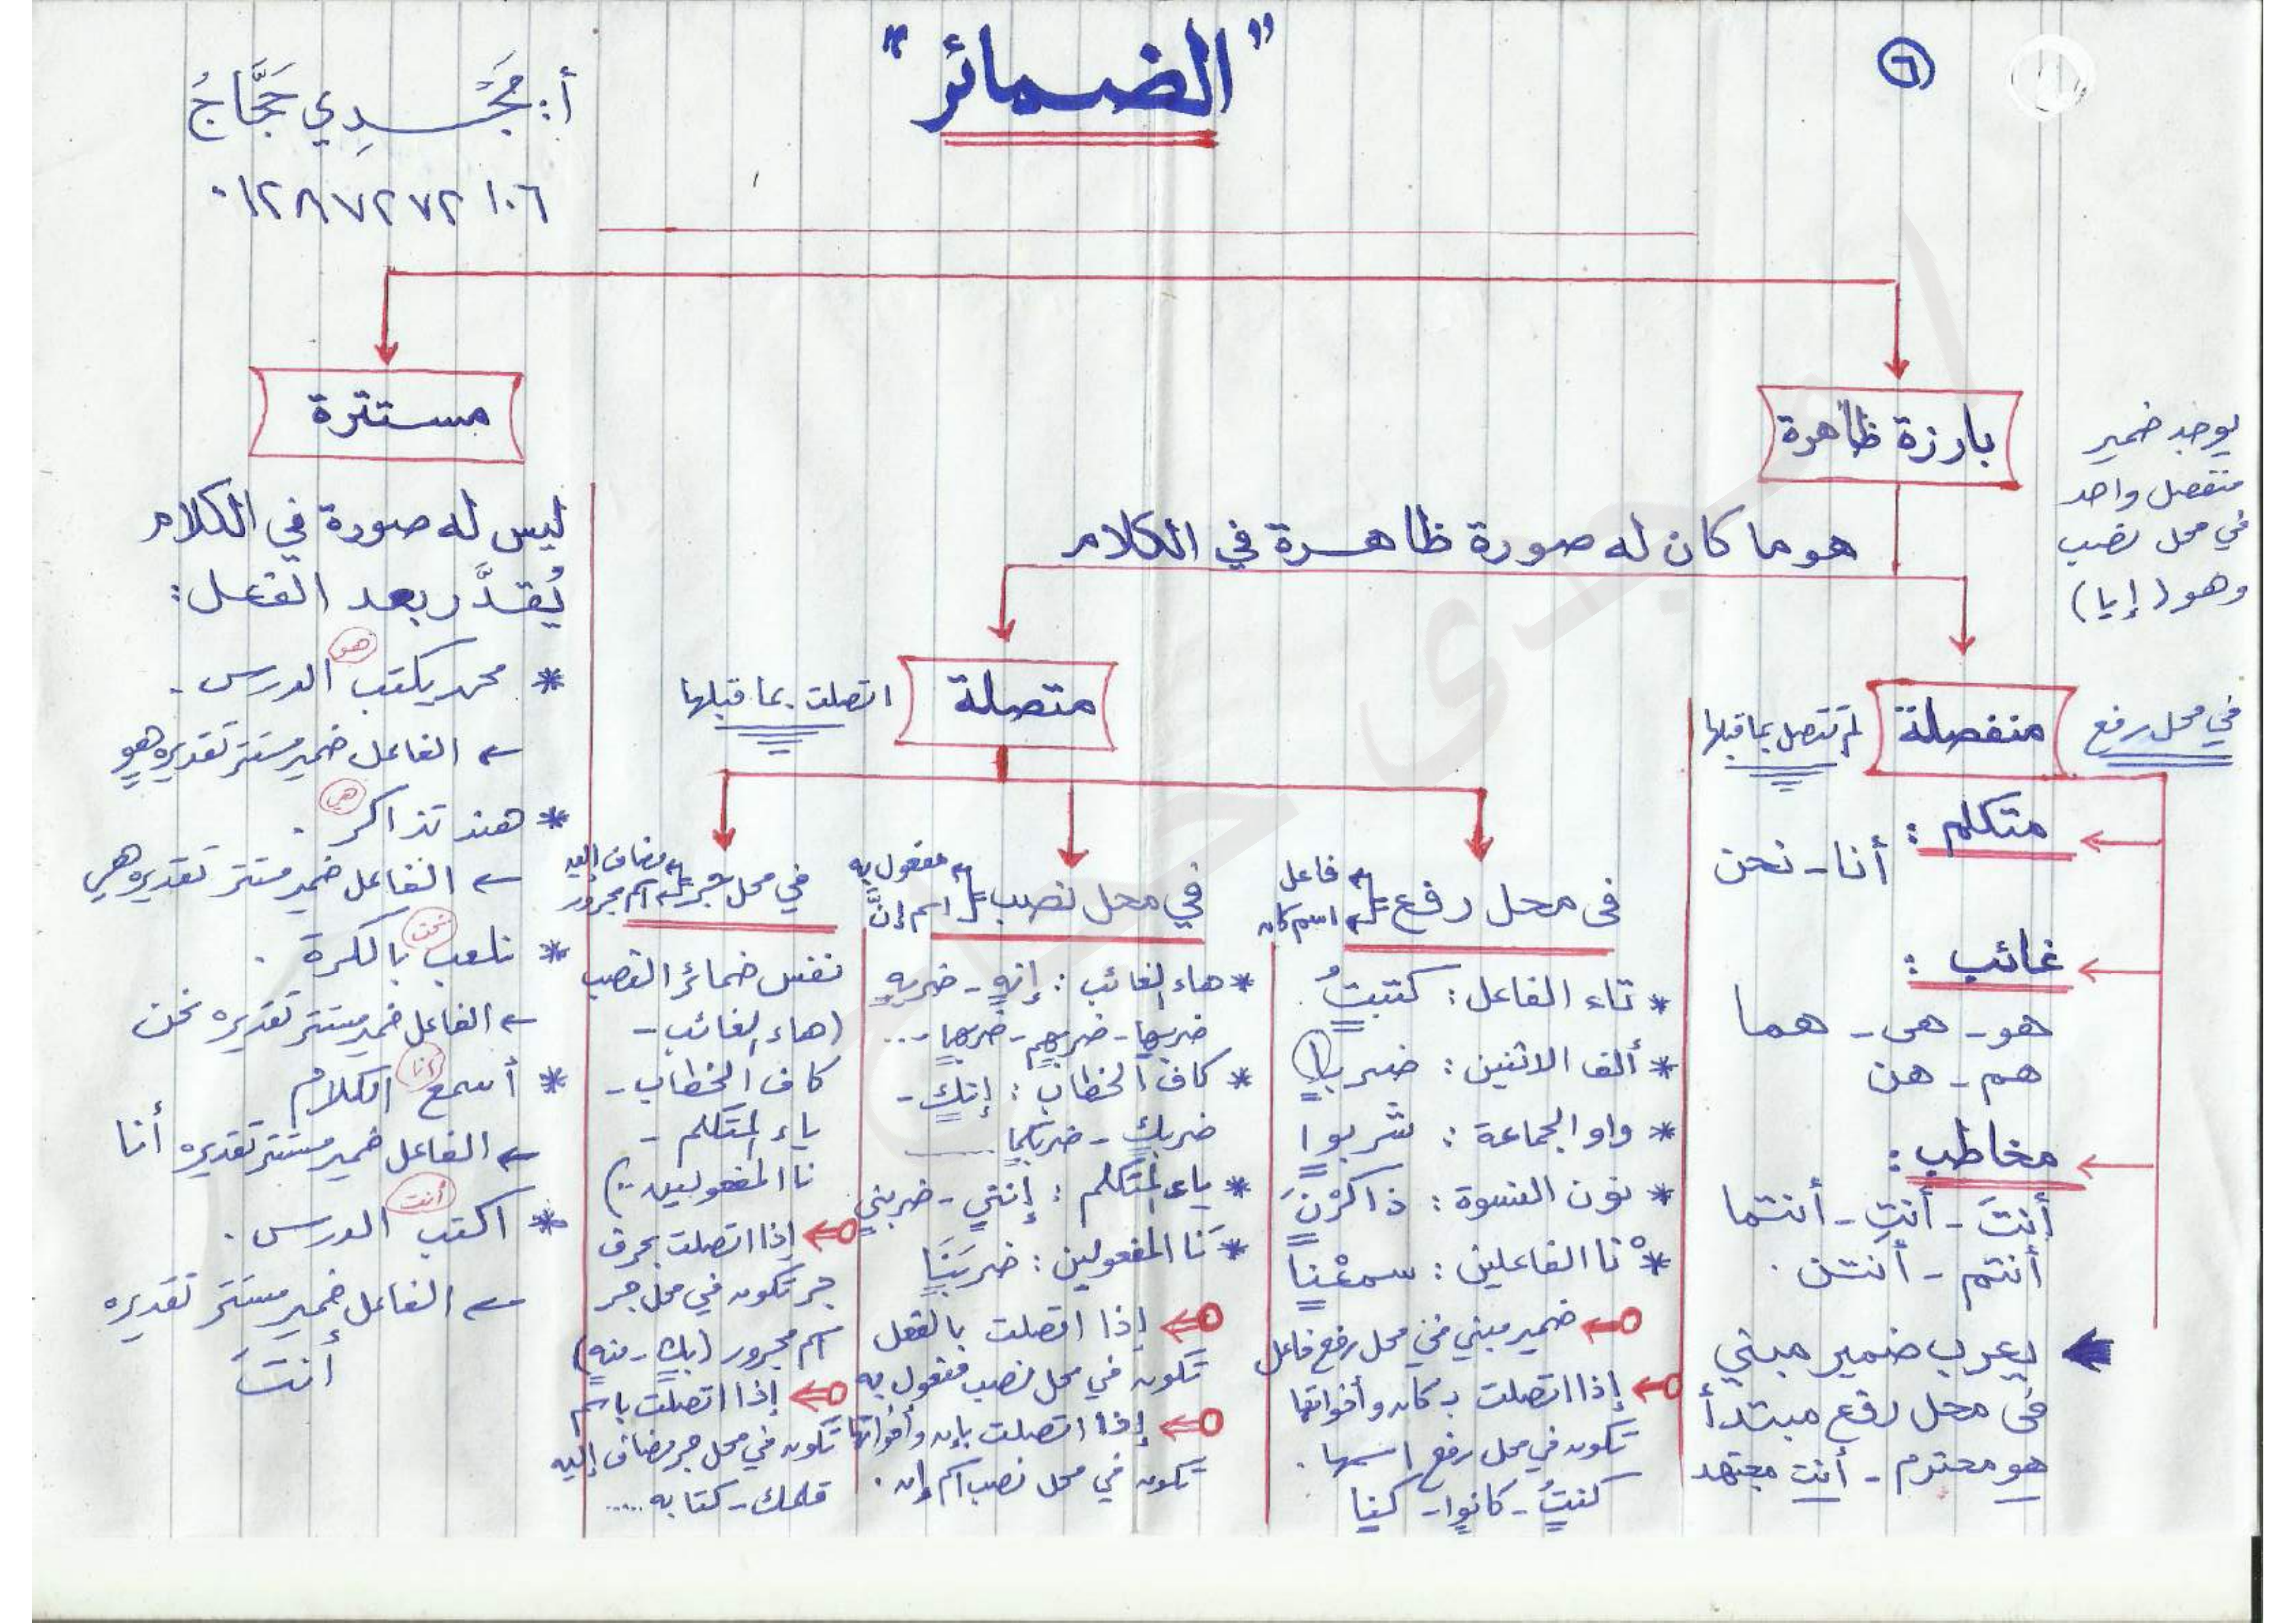 ٦
"الضمائر"
أ: مَجْدِي حَجَّاجُ
٠١٢٨٧٢٧٢١٠٦
بارزة ظاهرة
مستترة
يوجد ضمير
منفصل واحد
في محل نصب
وهو (إيا)
هو ما كان له صورة ظاهرة في الكلام
منفصلة
في محل رفع
لم تتصل بما قبلها
متكلم :
أنا - نحن
غائب :
هو - هى - هما
هم - هن
مخاطب :
أنتَ - أنتِ - أنتما
أنتم - أنتن .
يعرب ضمير مبني
فى محل رفع مبتدأ
هو محترم - أنت مجتهد
متصلة
اتصلت بما قبلها
فى محل رفع
فاعل
اسم كان
* تاء الفاعل : كتبتُ .
* ألف الاثنين : ضربا
* واو الجماعة : شربوا
* نون النسوة : ذاكرْنَ
* نا الفاعلين : سمعْنا
ضمير مبني في محل رفع فاعل
إذا اتصلت بـ كان وأخواتها
تكون في محل رفع اسمها .
كنتُ - كانوا - كنا
في محل نصب
مفعول به
اسم إنَّ
* هاء الغائب : إنه - ضربه
ضربها - ضربهم - ضربهما ...
* كاف الخطاب : إنك -
ضربك - ضربكما ......
* ياء المتكلم : إنني - ضربني
* نا المفعولين : ضربَنَا
إذا اتصلت بالفعل
تكون في محل نصب مفعول به
إذا اتصلت بإن وأخواتها
تكون في محل نصب اسم إن .
في محل جر
مضاف إليه
اسم مجرور
نفس ضمائر النصب
(هاء الغائب -
كاف الخطاب -
ياء المتكلم -
نا المفعولين ..)
إذا اتصلت بحرف
جر تكون في محل جر
اسم مجرور (بك - منه)
إذا اتصلت باسم
تكون في محل جر مضاف إليه
قلمك - كتابه .....
ليس له صورة في الكلام
يُقدَّر بعد الفعل :
* محمد يكتب (هو) الدرس .
← الفاعل ضمير مستتر تقديره هو
* هند تذاكر (هي) .
← الفاعل ضمير مستتر تقديره هي
* نلعب (نحن) بالكرة .
← الفاعل ضمير مستتر تقديره نحن
* أسمع (أنا) الكلام
← الفاعل ضمير مستتر تقديره أنا
* اكتب (أنت) الدرس .
← الفاعل ضمير مستتر تقديره
أنتَ
مجدى حجاج